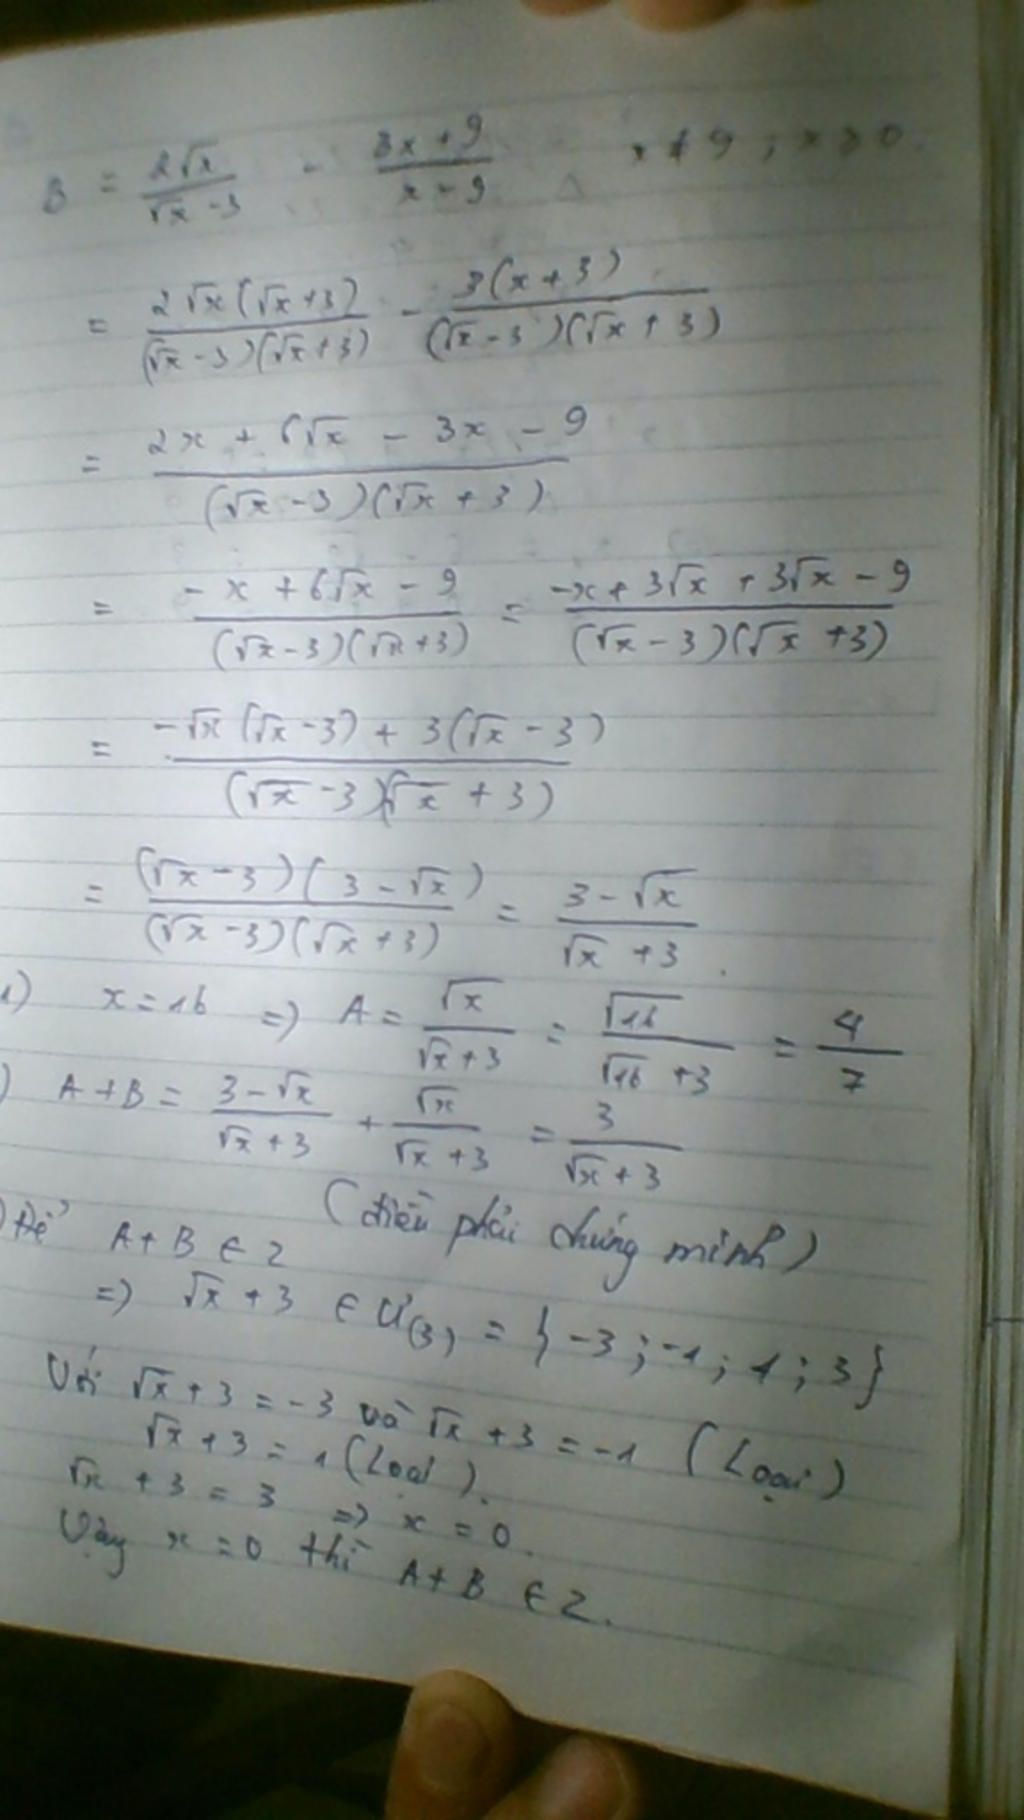 B = 2√x/(√x - 3) - (3x + 9)/(x - 9) x ≠ 9 ; x ≥ 0.
= 2√x(√x + 3)/((√x - 3)(√x + 3)) - 3(x + 3)/((√x - 3)(√x + 3))
= (2x + 6√x - 3x - 9)/((√x - 3)(√x + 3))
= (-x + 6√x - 9)/((√x - 3)(√x + 3)) = (-x + 3√x + 3√x - 9)/((√x - 3)(√x + 3))
= (-√x(√x - 3) + 3(√x - 3))/((√x - 3)(√x + 3))
= ((√x - 3)(3 - √x))/((√x - 3)(√x + 3)) = (3 - √x)/(√x + 3).
1) x = 16 => A = √x/(√x + 3) = √16/(√16 + 3) = 4/7
) A + B = (3 - √x)/(√x + 3) + √x/(√x + 3) = 3/(√x + 3)
(điều phải chứng minh)
) Để A + B ∈ Z
=> √x + 3 ∈ Ư(3) = {-3 ; -1 ; 1 ; 3}
Với √x + 3 = -3 và √x + 3 = -1 (Loại)
√x + 3 = 1 (Loại).
√x + 3 = 3 => x = 0.
Vậy x = 0 thì A + B ∈ Z.